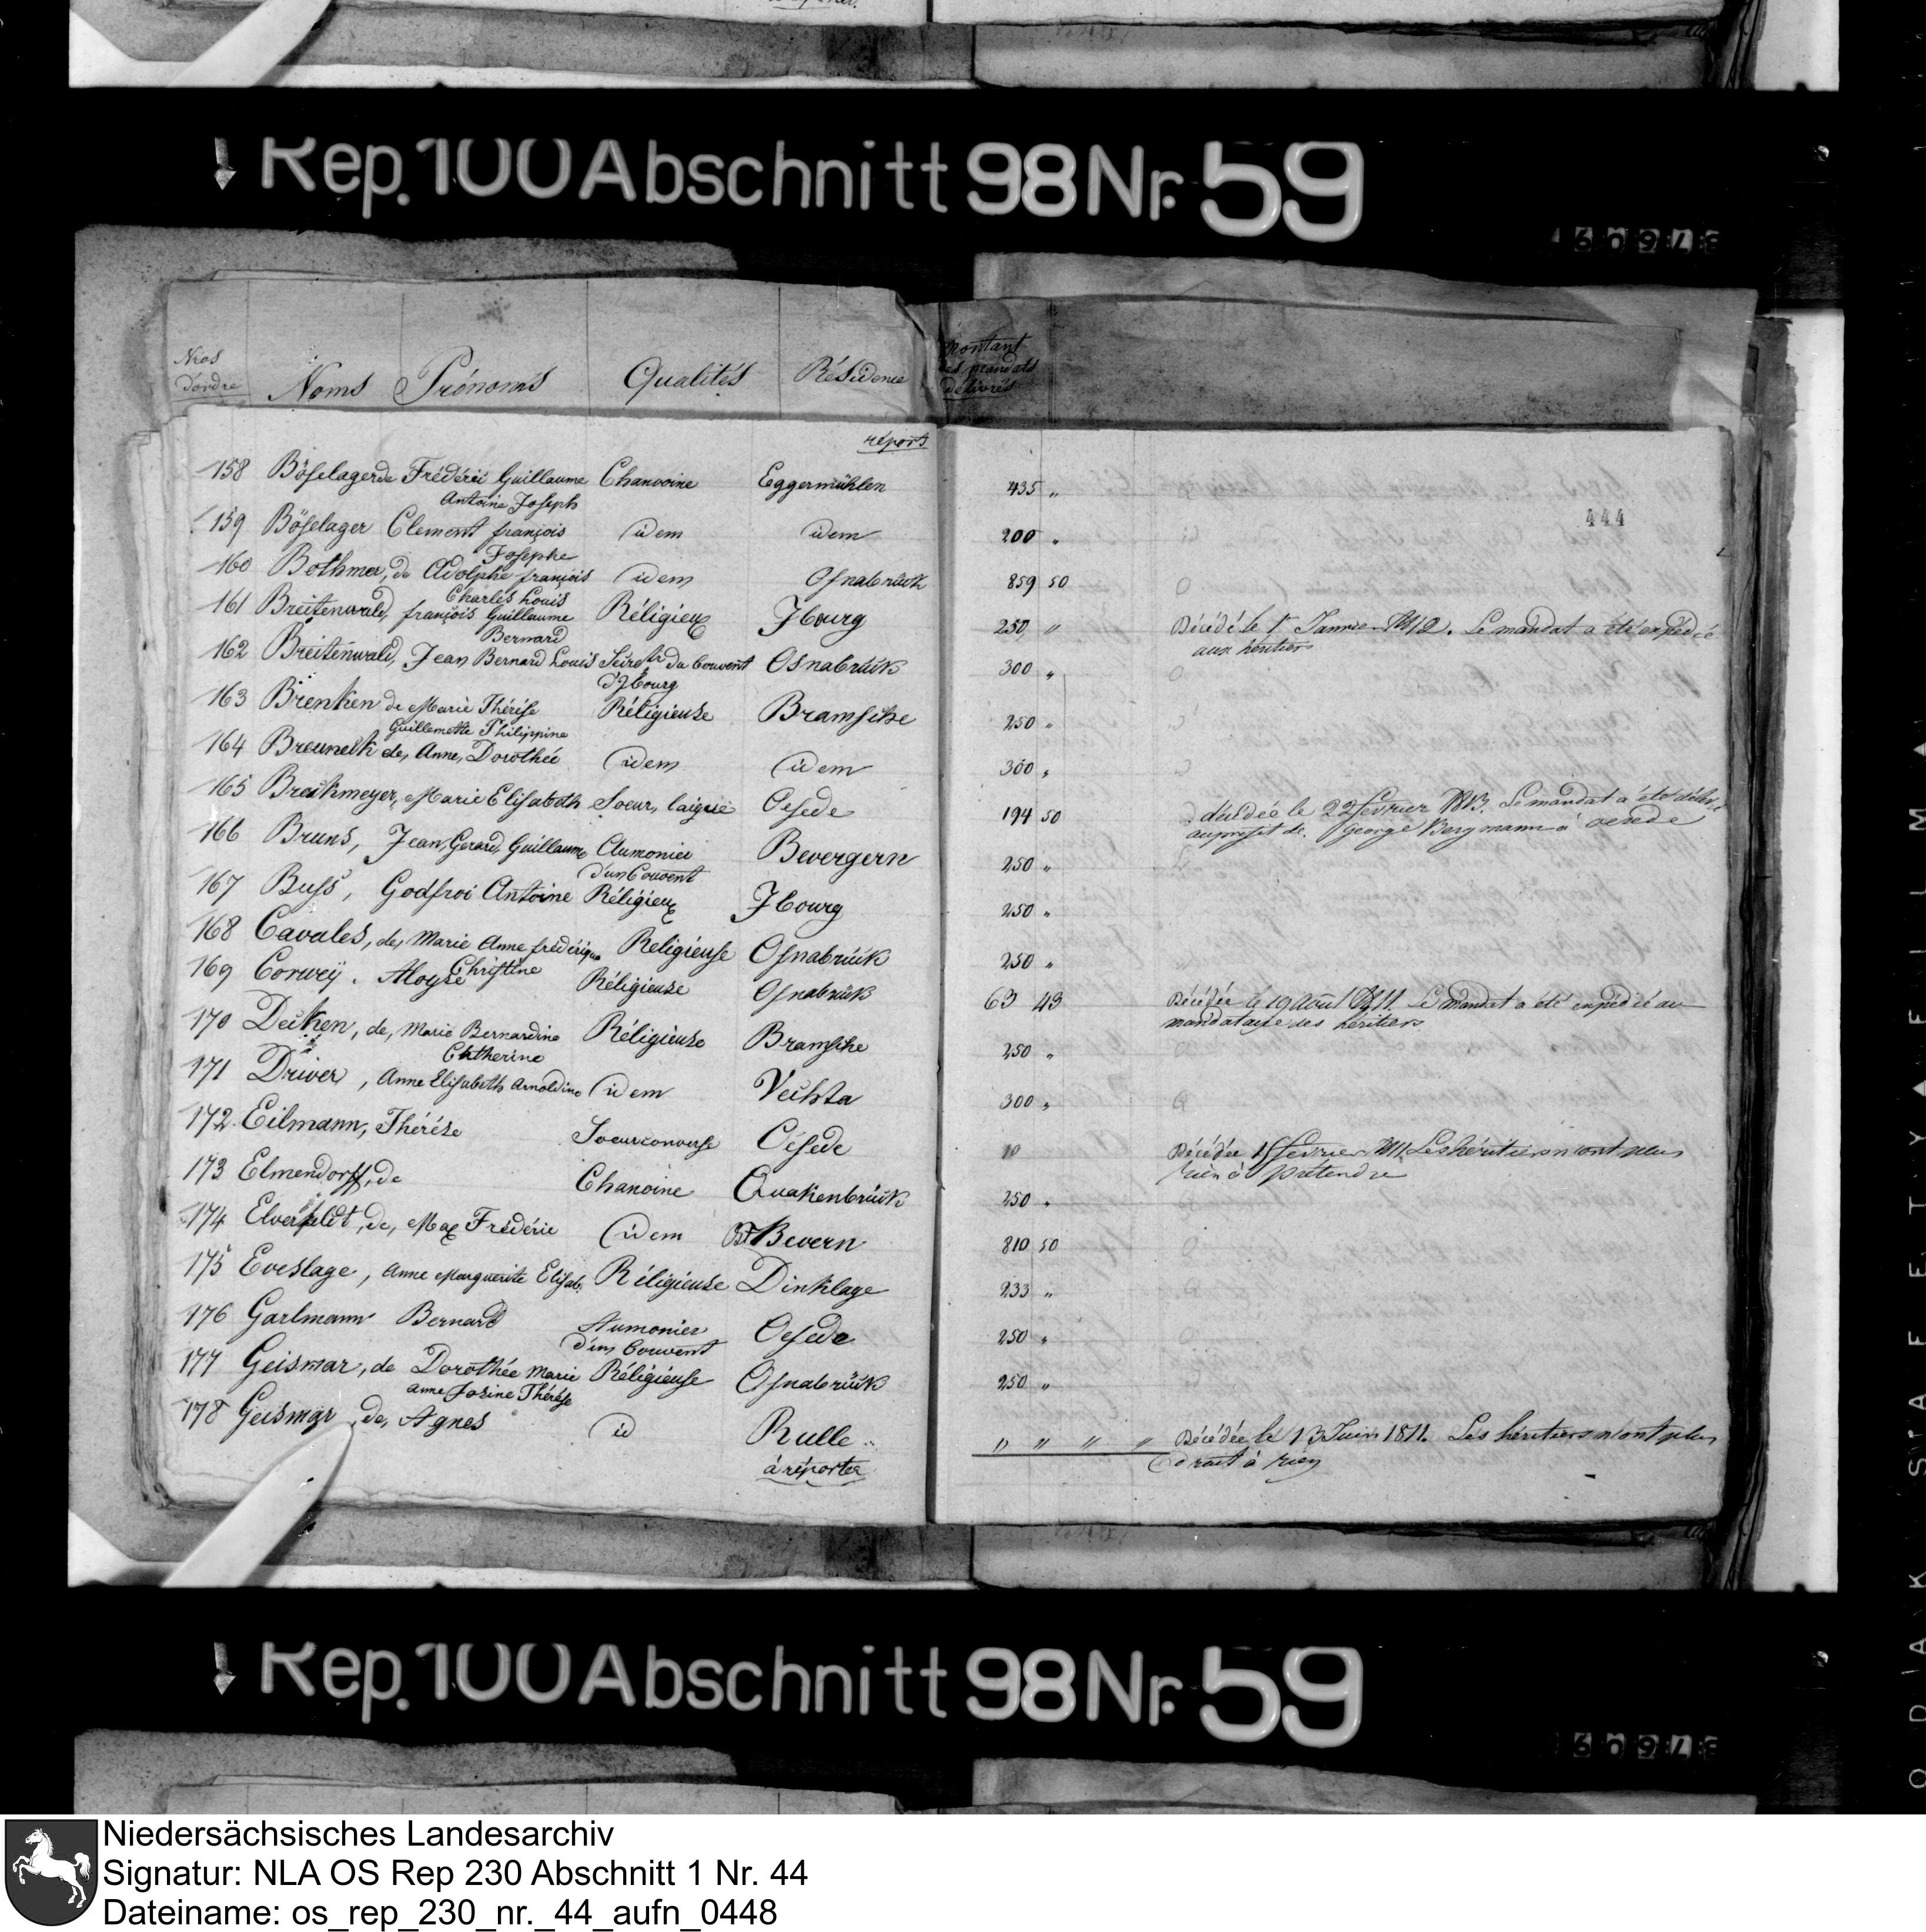 Rep. 100 Abschnitt 98 Nr. 59
Nros d'ordre Noms Prénoms Qualités Résidence Montant des mandats délivrés
réport
444
158 Böselager de Fréderic Guillaume Chanvoine Eggermühlen 435 "
Antoine Joseph
159 Böselager Clement françois idem idem 200 "
Josephe
160 Bothmer, de Adolphe françois idem Osnabrück 859 50
Charles Louis
161 Breitenwald, françois Guillaume Réligieux Jbourg 250 " Décédé le 1r Janvier 1812. Le mandat a été expédié
Bernard aux héritiers
162 Breitenwald, Jean Bernard Louis du Couvent Osnabrück 300 "
d'Jbourg
163 Brenken de Marie Thérése Réligieuse Bramsche 250 "
Guillemette Philippine
164 Breuneck de, Anne, Dorothée idem idem 300 "
165 Brockmeyer, Marie Elisabeth Soeur, laique Oesede 194 50 décédée le 22 fevrier 1813. Le mandat a été délivré
au profit de George Bergmann à Oesede
166 Bruns, Jean, Gerard, Guillaume Aumonier Bevergern 250 "
d'un Couvent
167 Buss, Godfroi Antoine Réligieux Jbourg 250 "
168 Cavales, de, Marie Anne frédérique Religieuse Osnabrück 250 "
Christine
169 Corweÿ. Aloyse Réligieuse Osnabrück 63 43 Décédée le 19 Août 1811. Le mandat a été expédié au
mandataire des héritiers
170 Decken, de, Marie Bernardine Réligieuse Bramsche 250 "
Chtherine
171 Driver, Anne Elisabeth Arnoldine idem Vechta 300 "
172 Eilmann, Thérése Soeur converse Oesede 10 Décédée fevrier 1811 Les héritiers n'ont plus
rien à prétendre
173 Elmendorff, de Chanoine Quakenbrück 250 "
174 Elverfeldt, de, Max Fréderic idem Bevern 810 50
175 Eveslage, Anne Marguerite Elisab. Réligieuse Dinklage 233 "
176 Garlmann Bernard Aumonier Oesede 250 "
d'un Couvent
177 Geismar, de Dorothée Marie Réligieuse Osnabrück 250 "
Anne Josine Thérése
178 Geismar, de, Agnes id Rulle " " " " Décédée le 13 Juin 1811. Les héritiers n'ont plus
droit à rien
à réporter
Rep. 100 Abschnitt 98 Nr. 59
Niedersächsisches Landesarchiv
Signatur: NLA OS Rep 230 Abschnitt 1 Nr. 44
Dateiname: os_rep_230_nr._44_aufn_0448